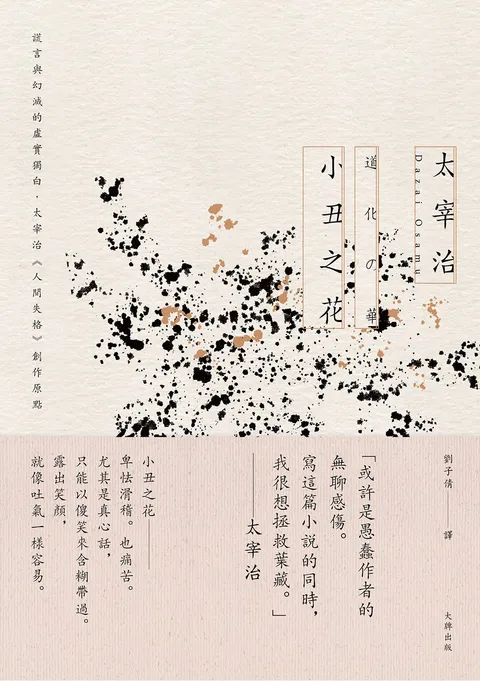 太宰治
Dazai Osamu
道化の華
小丑之花
謊言與幻滅的虛實獨白，太宰治《人間失格》創作原點
劉子倩——譯
大牌出版
「或許是愚蠢作者的
無聊感傷。
寫這篇小說的同時，
我很想拯救葉藏。」
——太宰治
小丑之花——
卑怯滑稽。也痛苦。
尤其是真心話，
只能以傻笑來含糊帶過。
露出笑顏，
就像吐氣一樣容易。